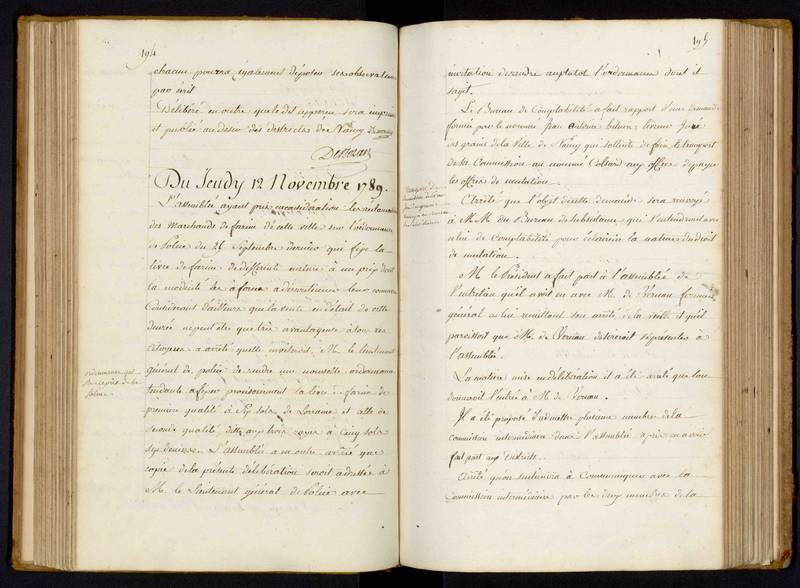 194
chacun pourra également déposer ses observations
par écrit
Délibéré en outre que le dit apperçu sera imprimé
et publié au desir des districts de Nancy
Du Jeudy 12 Novembre 1789.
L'assemblée ayant pris en considération les reclamations
des marchands de farine de cette ville sur l'ordonnance
de Police du 26 Septembre dernier qui fixe la
livre de farine de differente nature à un prix dont
la modicité les a forcé à discontinuer leur commerce
Considerant d'ailleurs que la vente en détail de cette
denrée ne peut être que très avantageuse à tous les
Citoyens a arrêté quelle inviteroit M. le lieutenant
général de police de rendre une nouvelle ordonnance
tendante a fixer provisoirement la livre de farine de
premiere qualité à six sols de Lorraine et celle de
seconde qualité dite aux trois rayes à cinq sols
six deniers. L'assemblée a en outre arrêté que
copie de la présente délibération seroit adressée à
M. le Lieutenant général de Police avec
195
invitation de rendre auplutot l'ordonnance dont il
sagit.
Le Bureau de Comptabilité a fait rapport d'une demande
formée par le nommé Jean Antoine Juré
des grains de la Ville de Nancy qui sollicite de faire le transport
de sa Commission au nommé Collard aux offres de payer
les offices de mutation.
Arrêté que l'objet de cette demande sera renvoyé
à M.M. du Bureau de subsistance qui s'entendront avec
celui de comptabilité pour éclaircir la nature du droit
de mutation.
M. le Président a fait part à l'assemblée de
l'entretien qu'il avoit eu avec M. de fermier
général en lui remettant son arrêté de la veille et qu'il
paroissoit que M. de desireroit se présenter à
l'assemblée.
La matiere mise en délibération il a été arrêté que l'on
donneroit l'entrée à M. de
Il a été proposé d'admettre plusieurs membres de la
commission intermediaire dans l'assemblée après en avoir
fait part aux Districts.
Arrêté qu'on s'en tiendra à Communiquer avec la
Commission intermédiaire par les deux membres de la